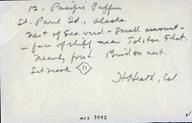 12. Pacific Puffin
St. Paul Id., Alaska
Nest of Sea weed - small amount -
- face of cliff near Tolstoi Flat.
Nearly fresh Bird on nest.
Set mark 11
H Heath, Col
MVZ 3292